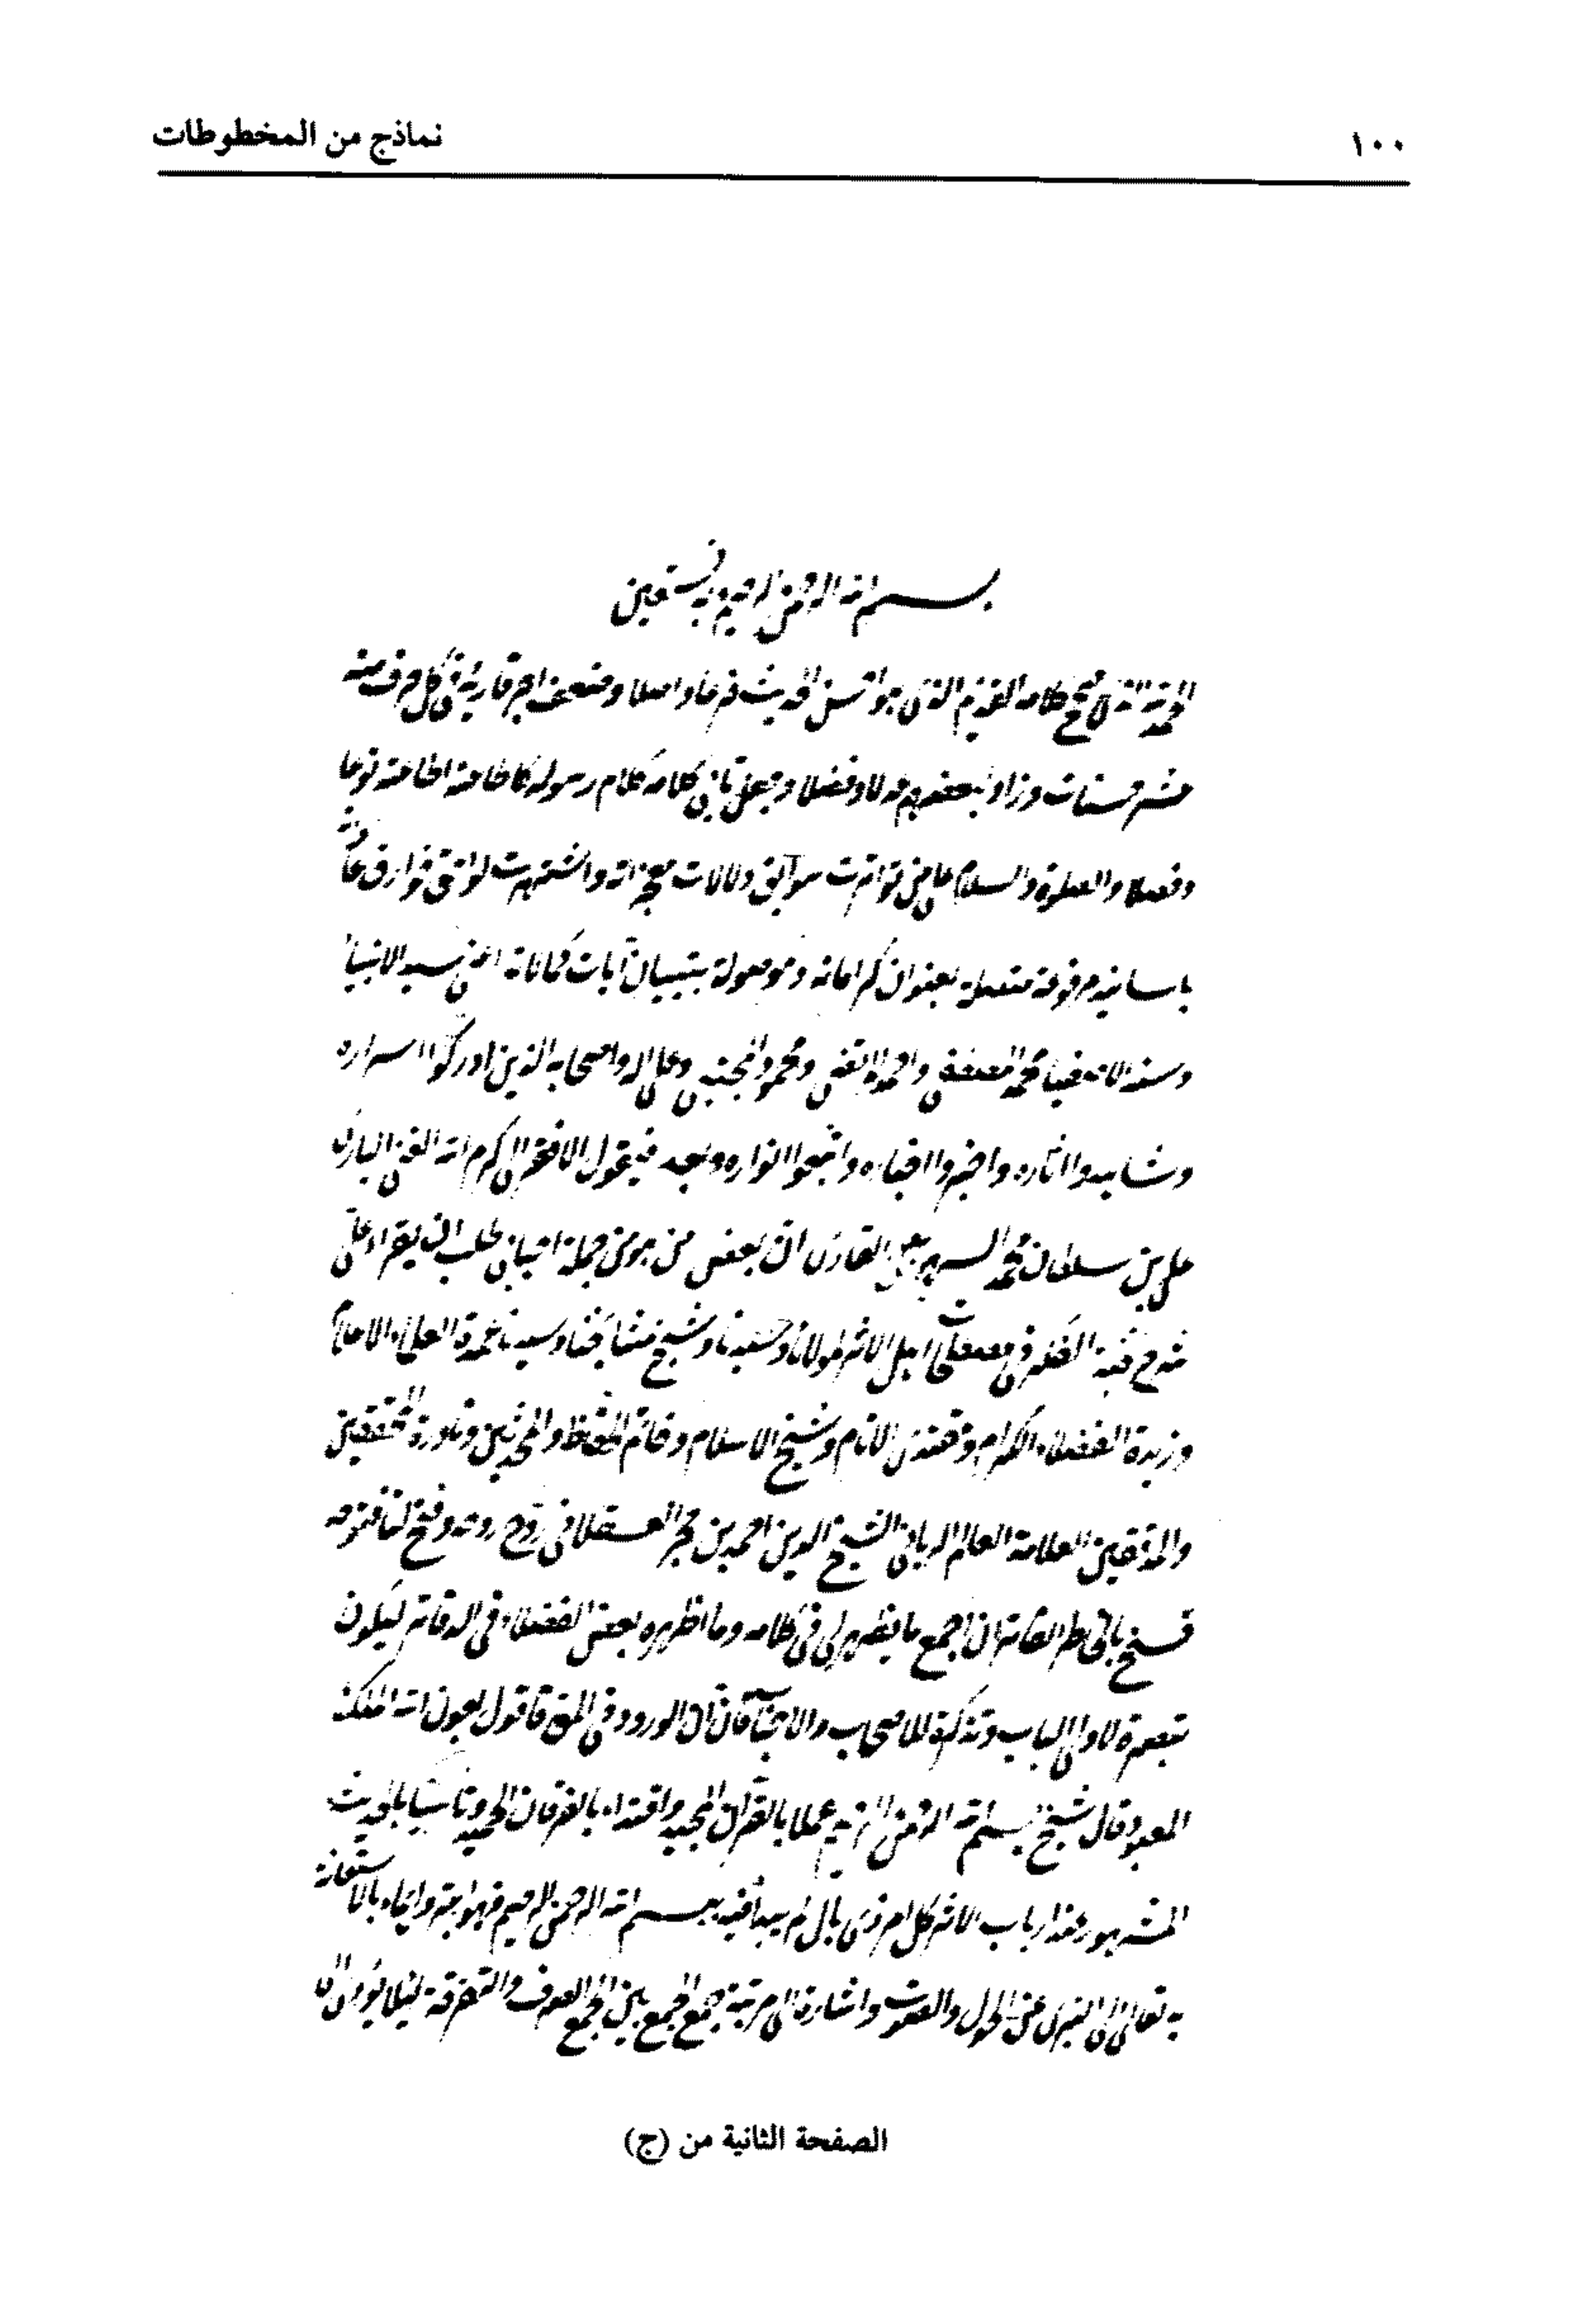 ١٠٠
نماذج من المخطوطات
بسم الله الرحمن الرحيم وبه نستعين
الحمد لله الذي صحح كلامه القديم الذي هو احسن الحديث فرعا واصلا وضعف اجر قارئيه في كل حرف منه
عشر حسنات وزاد لبعضهم عدلا وفضلا وجعل ثاني كلامه كلام رسوله كاطاعته اطاعته نوعا
وفصلا والصلوة والسلام على من تواترت سوابق دلالات معجزاته واشتهرت لواحق خوارق عاداته
باسانيد مرفوعة متصلة بعنوان كراماته وموصولة بتبيان آيات كمالاته اعني سيد الانبياء
وسند الاصفياء محمد المصطفى واحمد المرتضى ومحمود المجتبى وعلى اله واصحابه الذين ادركوا اسراره
وشاهدوا اثاره واخبروا اخباره واتبعوا انواره وبعد فيقول الافقر الى كرم الله الغني الباري
علي بن سلطان محمد الهروي القاري ان بعض من هو من جملة اعياني طلب ان يقرا على
شرح نخبة الفكر في مصطلحات اهل الاثر لمولانا وسيدنا وشيخ مشايخنا وسندنا عمدة العلماء الاعلام
وزبدة الفضلاء الكرام ومقتدى الانام وشيخ الاسلام وخاتم الحفاظ والمحدثين ونادرة المحققين
والمدققين العلامة العالم الرباني الشيخ الدين احمد بن حجر العسقلاني روح روحه وفتح لنا فتوحه
فسنح بالخاطر الفاتر ان اجمع ما يظهر لي في كلامه وما اظهره بعض الفضلاء في الدفاتر ليكون
تبصرة لاولي الالباب وتذكرة للاصحاب والاحباب فان آن الورود في المقصود فاقول بعون الله الملك
المعبود قال الشيخ بسم الله الرحمن الرحيم عملا بالقرآن المجيد واقتداء بالفرقان الحميد وتاسيا بالحديث
المشهور عند ارباب الاثر كل امر ذي بال لم يبدأ فيه ببسم الله الرحمن الرحيم فهو ابتر وايماء بالاستعانة
به تعالى الى التبري عن الحول والقوت واشارة الى مرتبة جمع الجمع بين الجمع الصرف والتفرقة ليلا يؤدي الى
الصفحة الثانية من (ج)